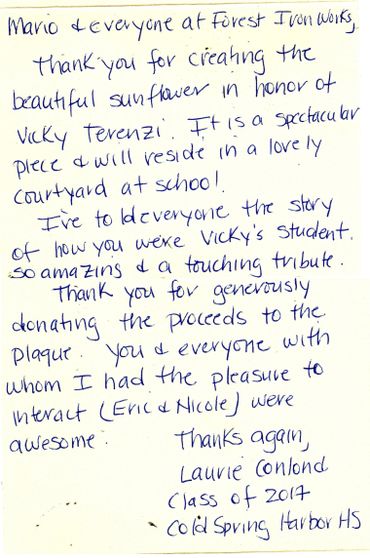 Mario & everyone at Forest Iron Works,
Thank you for creating the
beautiful sunflower in honor of
Vicky Terenzi. It is a spectacular
piece & will reside in a lovely
courtyard at school.
I've told everyone the story
of how you were Vicky's student.
so amazing & a touching tribute.
Thank you for generously
donating the proceeds to the
plaque. You & everyone with
whom I had the pleasure to
interact (Eric & Nicole) were
awesome.
Thanks again,
Laurie Conlond
Class of 2017
Cold Spring Harbor HS